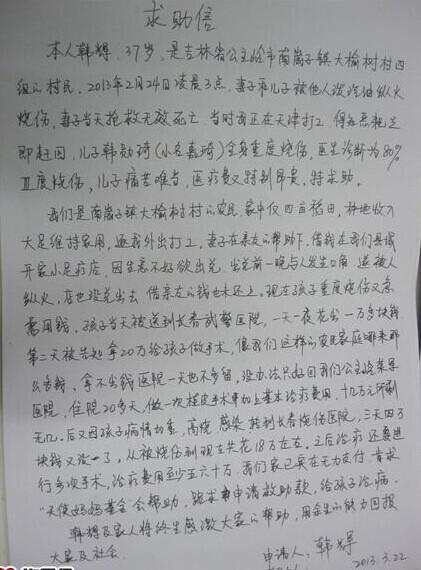 求助信
本人韩辉，37岁，是吉林省公主岭市南崴子镇大榆树村四
组的村民，2013年2月24日凌晨3点，妻子和儿子被他人泼汽油纵火
烧伤，妻子当天抢救无效死亡，当时我正在天津打工，得知恶耗立
即赶回，儿子韩勋琦（小名嘉琦）全身重度烧伤，医生诊断为80%
Ⅲ度烧伤，儿子痛苦难当，医疗费又特别昂贵，特求助。
我们是南崴子镇大榆树村的农民，家中仅四亩稻田，种地收入
不足维持家用，还我外出打工，妻子在亲友的帮助下，借钱在我们县城
开家小足疗店，因生意不好欲出兑，出兑前一晚与人发生口角，遂被人
纵火，店也没兑出去，借亲友的钱也未还上。现在孩子重度烧伤又急
需用钱，孩子当天被送到长春武警医院，一天一夜花出一万多块钱
第二天被告知拿20万给孩子做手术，像我们这样的农民家庭哪来那
么多钱，拿不出钱医院一天也不多留，没办法只好回我们公主岭某某
医院，住院20多天，做一次植皮手术再加上基本治疗费用，十几万元所剩
无几。后又因孩子病情加重，高烧，感染，转到长春烧伤医院，三天四万
块钱又没了，从被烧伤到现在共花18万左右，之后治疗还要进
行多次手术，治疗费用至少五六十万，我们家已实在无力支付，肯求
“天使妈妈基金”会帮助，能为申请救助款，给孩子治病。
韩辉及家人将终生感激大家的帮助，用余生的能力回报
大家及社会。
申请人：韩辉
2013.3.22